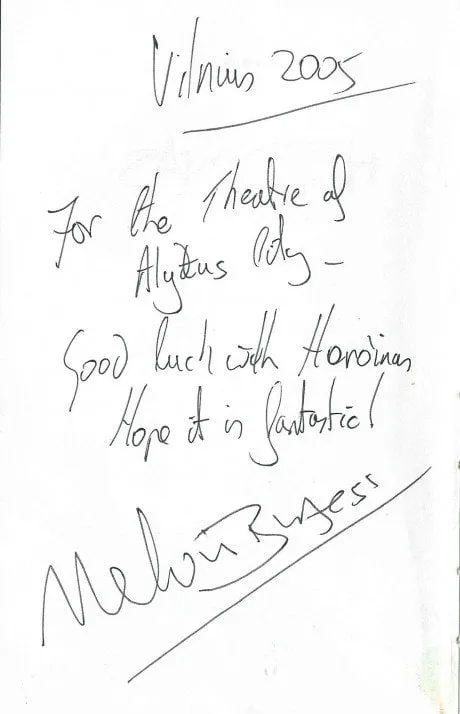 Vilnius 2005
For the Theatre of
Alytus City –
Good luck with Heroinas
Hope it is fantastic!
Melvin Burgess